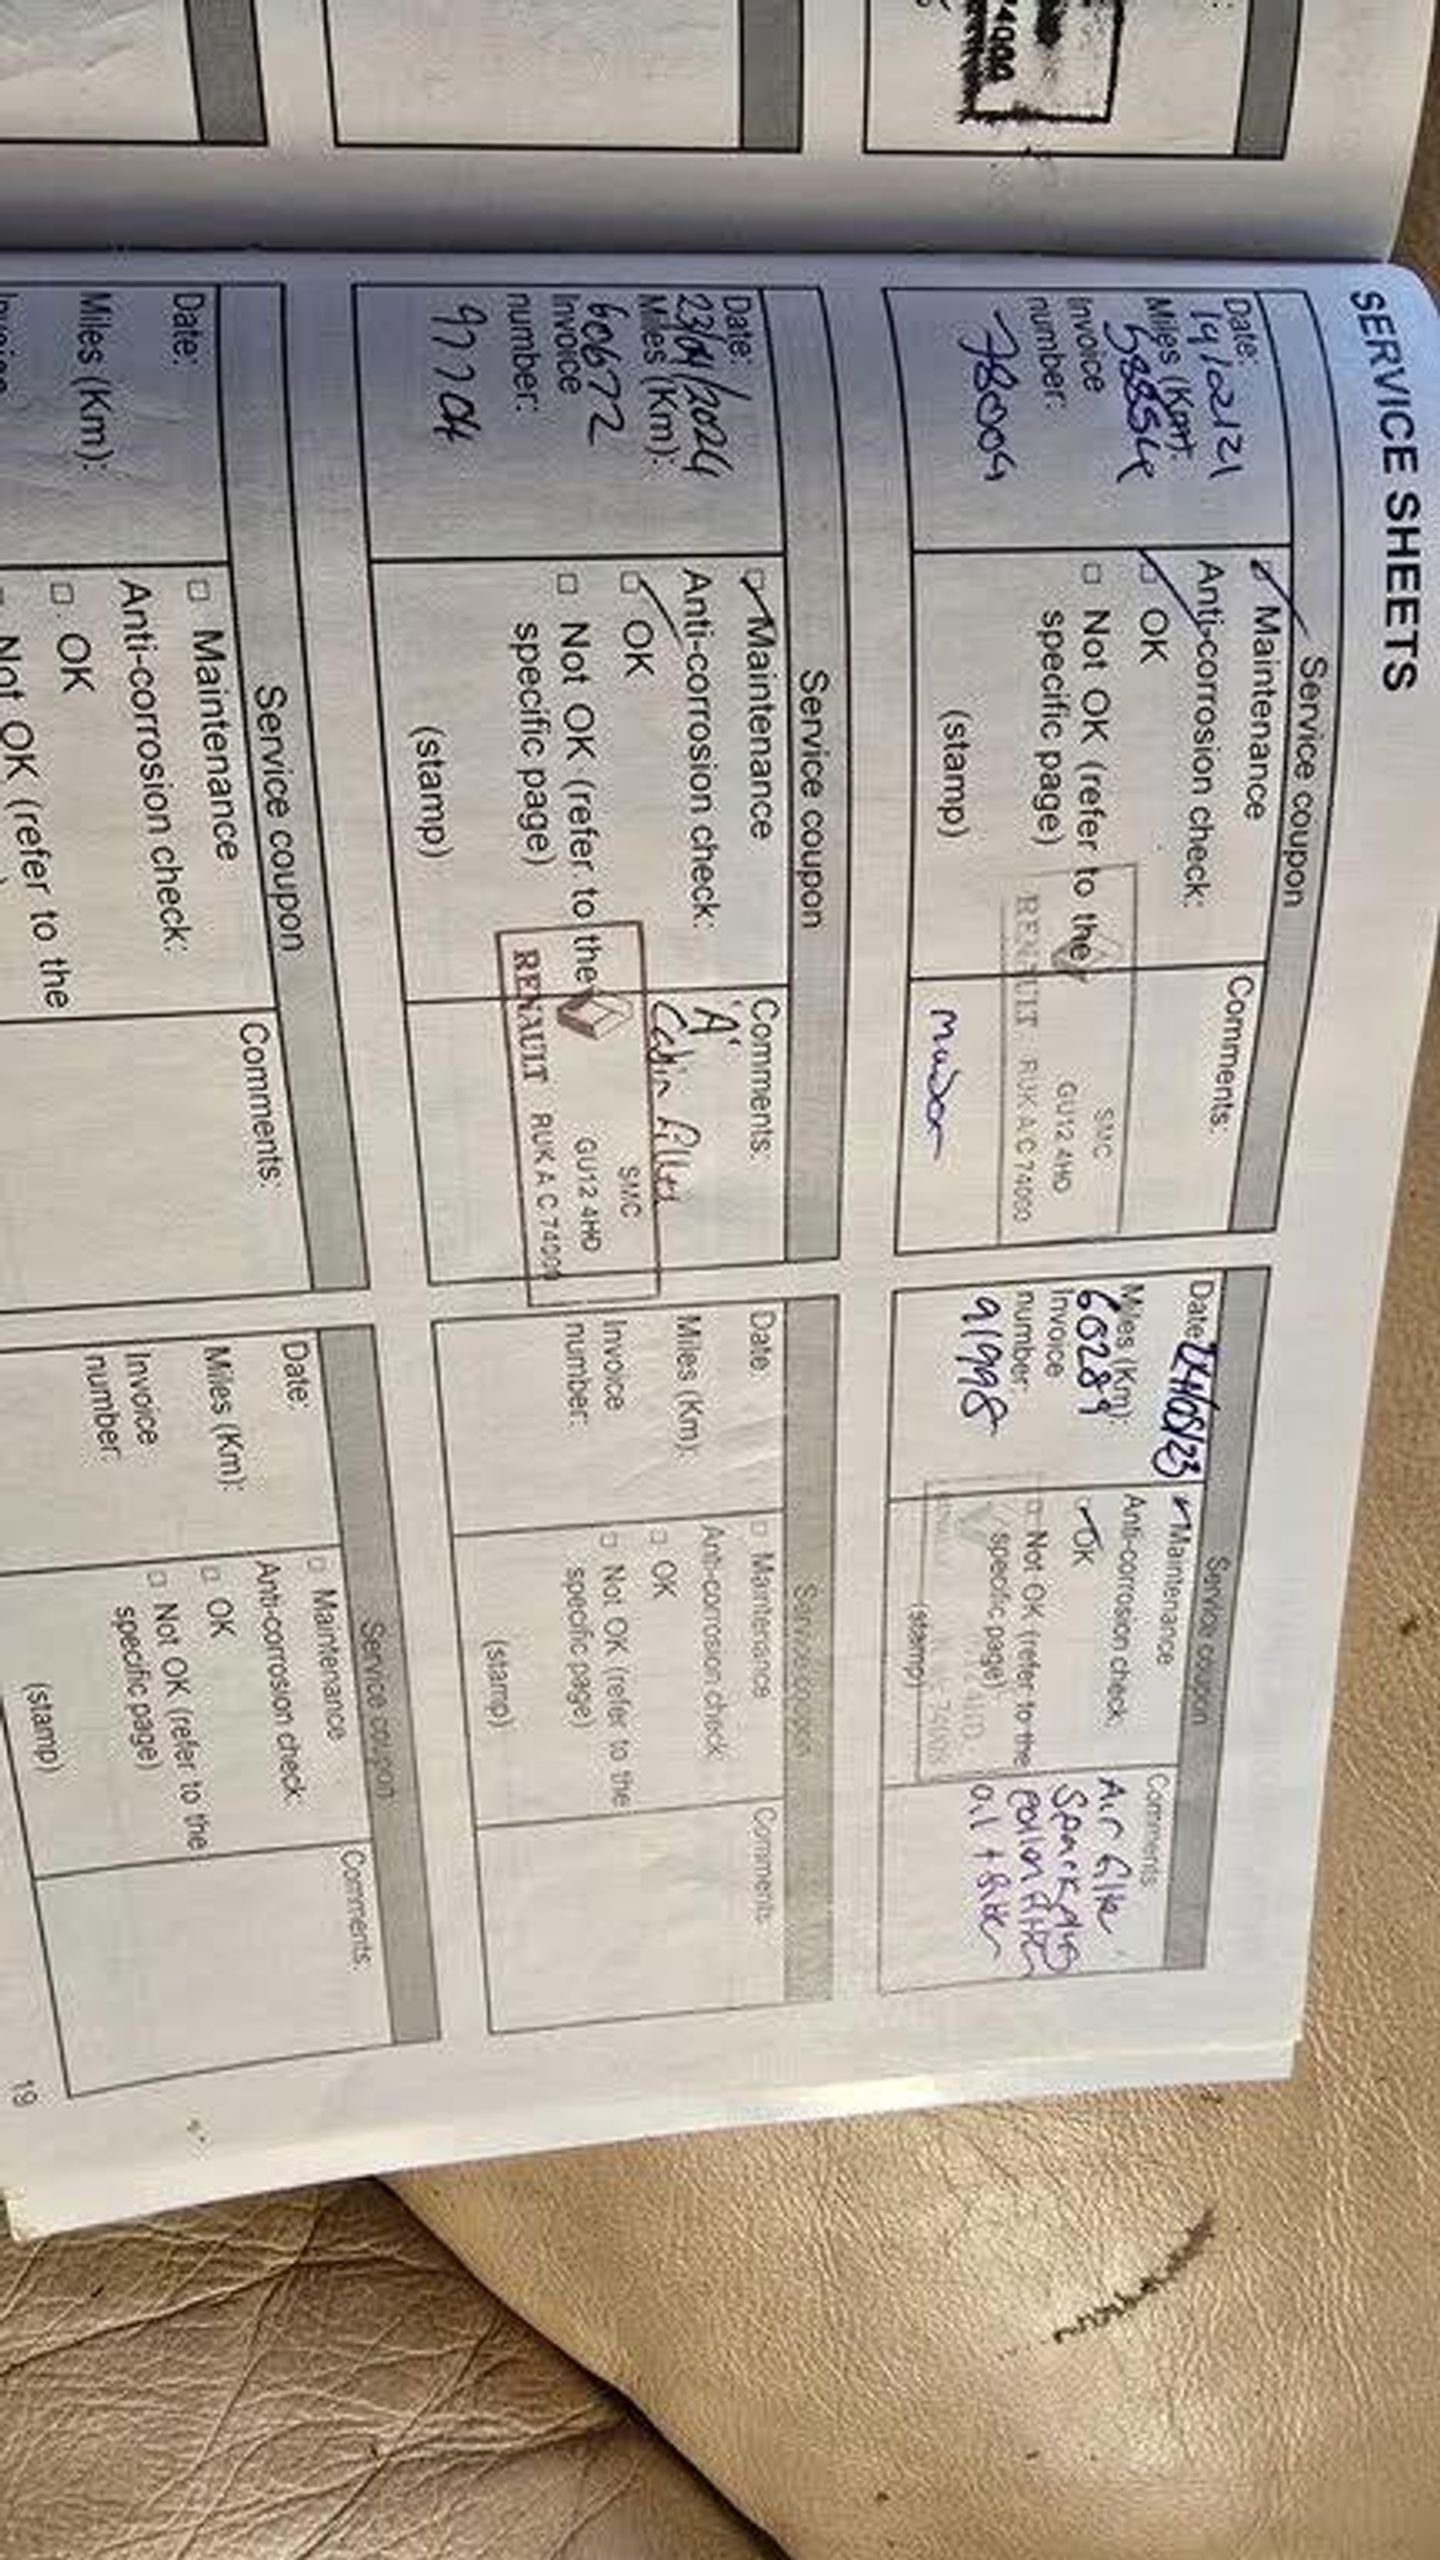 74000
SERVICE SHEETS
Service coupon
Date:
14/02/21
Miles (Km):
Invoice
number:
78004
Maintenance
Anti-corrosion check:
OK
Not OK (refer to the
specific page)
(stamp)
Comments:
SMC
GU12 4HD
RENAULT RUK A C 74000
Service coupon
Date:
24/05/23
Miles (Km):
60289
Invoice
number:
91998
Maintenance
Anti-corrosion check:
OK
Not OK (refer to the
specific page)
(stamp)
Comments:
Air filter
Spark plugs
Pollen filter
oil + filter
Service coupon
Date:
23/04/2024
Miles (Km):
60672
Invoice
number:
97704
Maintenance
Anti-corrosion check:
OK
Not OK (refer to the
specific page)
(stamp)
Comments:
'A'
Cabin filter
SMC
GU12 4HD
RENAULT RUK A C 74000
Service coupon
Date:
Miles (Km):
Invoice
number:
Maintenance
Anti-corrosion check:
OK
Not OK (refer to the
specific page)
(stamp)
Comments:
Service coupon
Date:
Miles (Km):
Invoice
Maintenance
Anti-corrosion check:
OK
Not OK (refer to the
Comments:
Service coupon
Date:
Miles (Km):
Invoice
number:
Maintenance
Anti-corrosion check:
OK
Not OK (refer to the
specific page)
(stamp)
Comments:
19